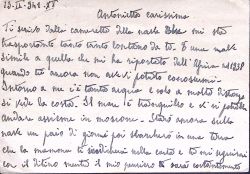 Antonietta carissima
Ti scrivo dalla cameretta della nave che mi sta
trasportando tanto tanto lontano da te. È una nave
simile a quella che mi ha riportato dall'Africa nel 1938
quando tu ancora non avevi potuto conoscermi.
Intorno a me c'è tanta acqua e solo a molta distanza
si vede la costa. Il mare è tranquillo e ci si potrebbe
andare assieme in moscone. Starò ancora sulla
nave un paio di giorni poi sbarcherò in una terra
che la mamma ti
con il ditino mentre il mio pensiero sarà costantemente